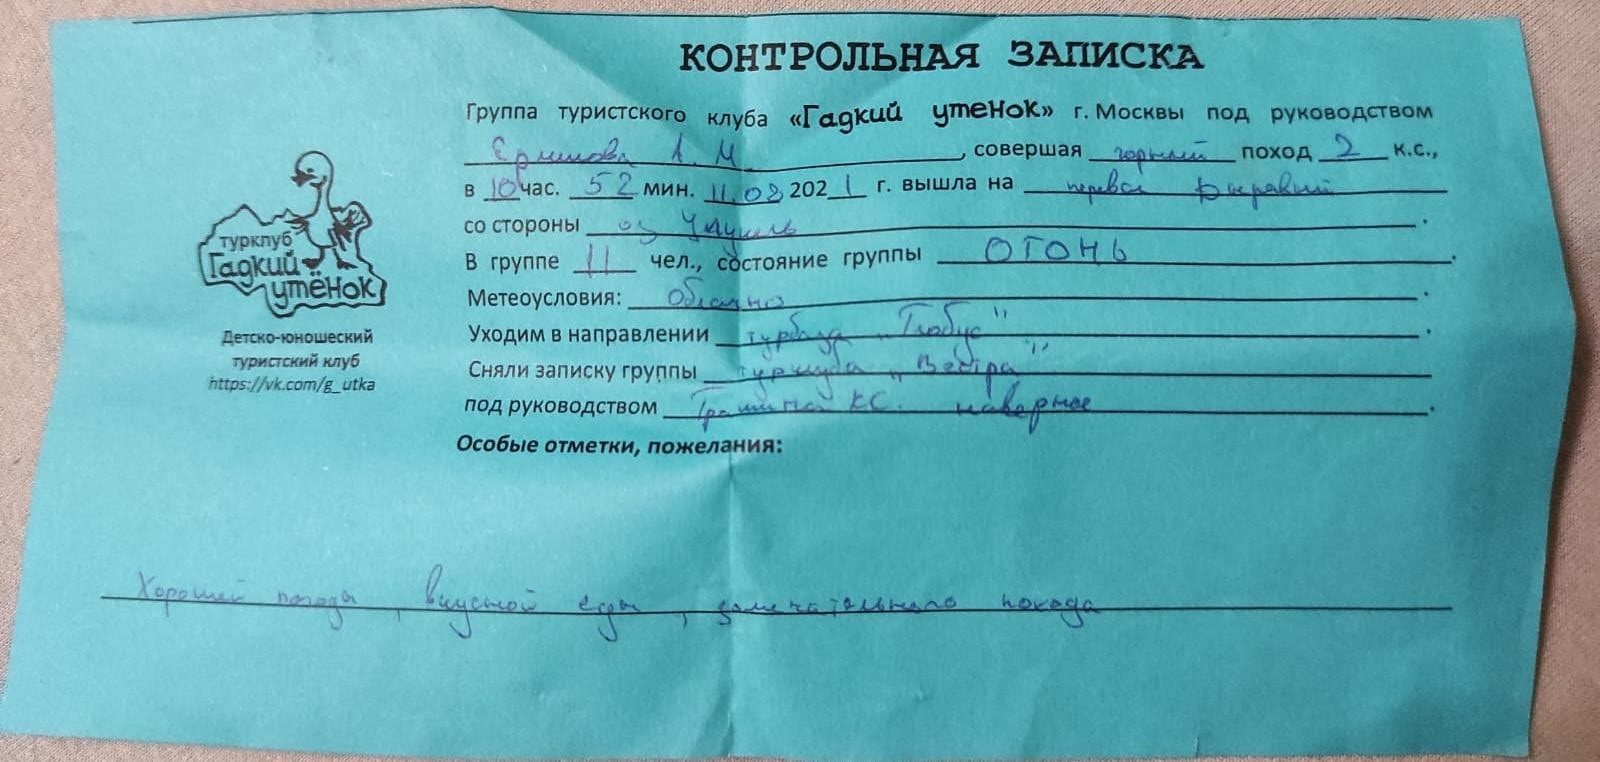 КОНТРОЛЬНАЯ ЗАПИСКА
Группа туристского клуба «Гадкий утенок» г. Москвы под руководством
Ермилова А. М, совершая горный поход 2 к.с.,
в 10 час. 52 мин. 11.08 2021 г. вышла на перевал
со стороны оз
В группе 11 чел., состояние группы ОГОНЬ.
Метеоусловия: Облачно.
Уходим в направлении турбаза "Глобус".
Сняли записку группы турклуба "Вестра"
под руководством КС. наверное.
Особые отметки, пожелания:
Хорошей погоды, вкусной еды, замечательного похода
турклуб
Гадкий
утёнок
Детско-юношеский
туристский клуб
https://vk.com/g_utka